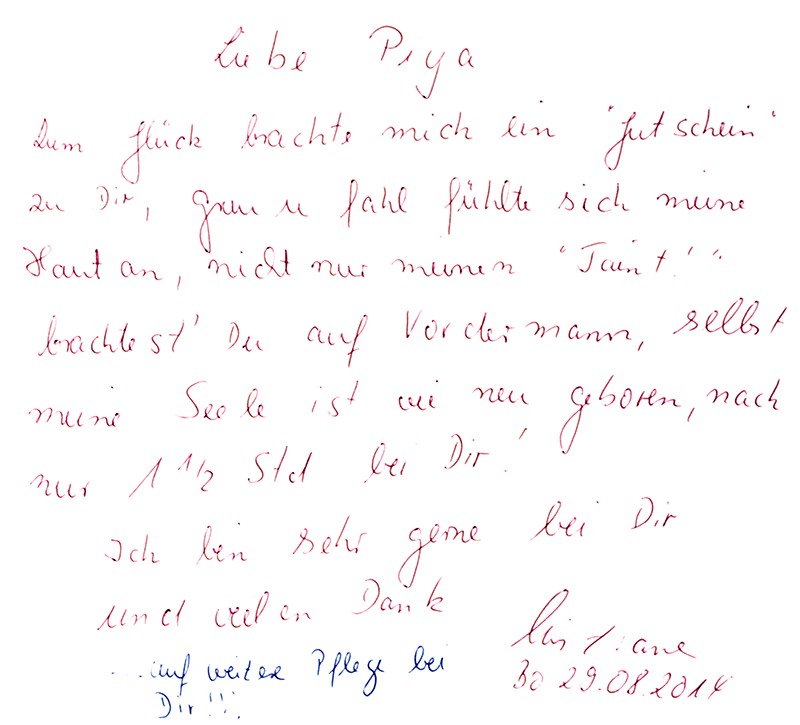 Liebe Priya
Zum Glück brachte mich ein "Gutschein"
zu Dir, grau u fahl fühlte sich meine
Haut an, nicht nur meinen "Taint!"
brachtest Du auf Vordermann, selbst
meine Seele ist wie neu geboren, nach
nur 1 1/2 Std bei Dir!
Ich bin sehr gerne bei Dir
und vielen Dank
...auf weitere Pflege bei
Dir!!!
29.08.2014